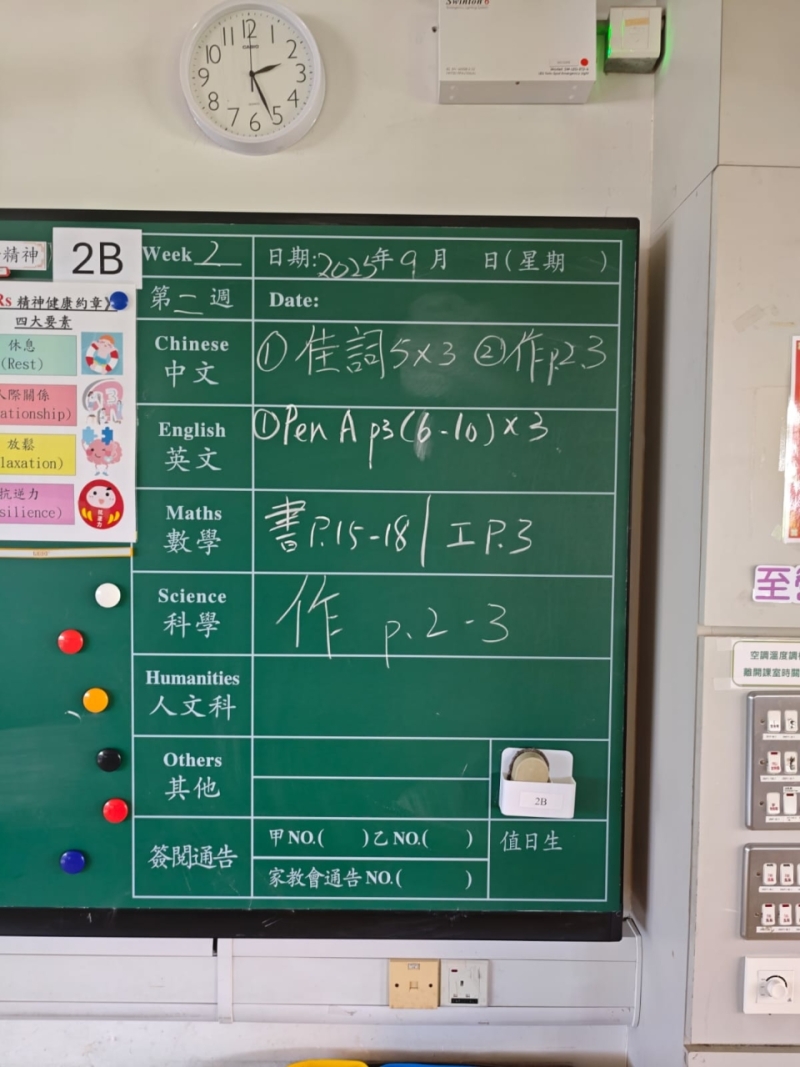 12 1 2 3 4 5 6 7 8 9 10 11
CASIO
Swinton 6
精神
2B
Rs 精神健康約章》
四大要素
休息
(Rest)
人際關係
ationship)
放鬆
laxation)
抗逆力
silience)
Week 2 日期:2025年9月 日(星期 )
第二週 Date:
Chinese
中文
① 佳詞5×3 ②作p.2.3
English
英文
①Pen A p3(6-10)×3
Maths
數學
書P.15-18/工P.3
Science
科學
作 p.2-3
Humanities
人文科
Others
其他
2B
簽閱通告
甲NO.( )乙NO.( )
值日生
家教會通告NO.( )
至
空調溫度調
離開課室時關